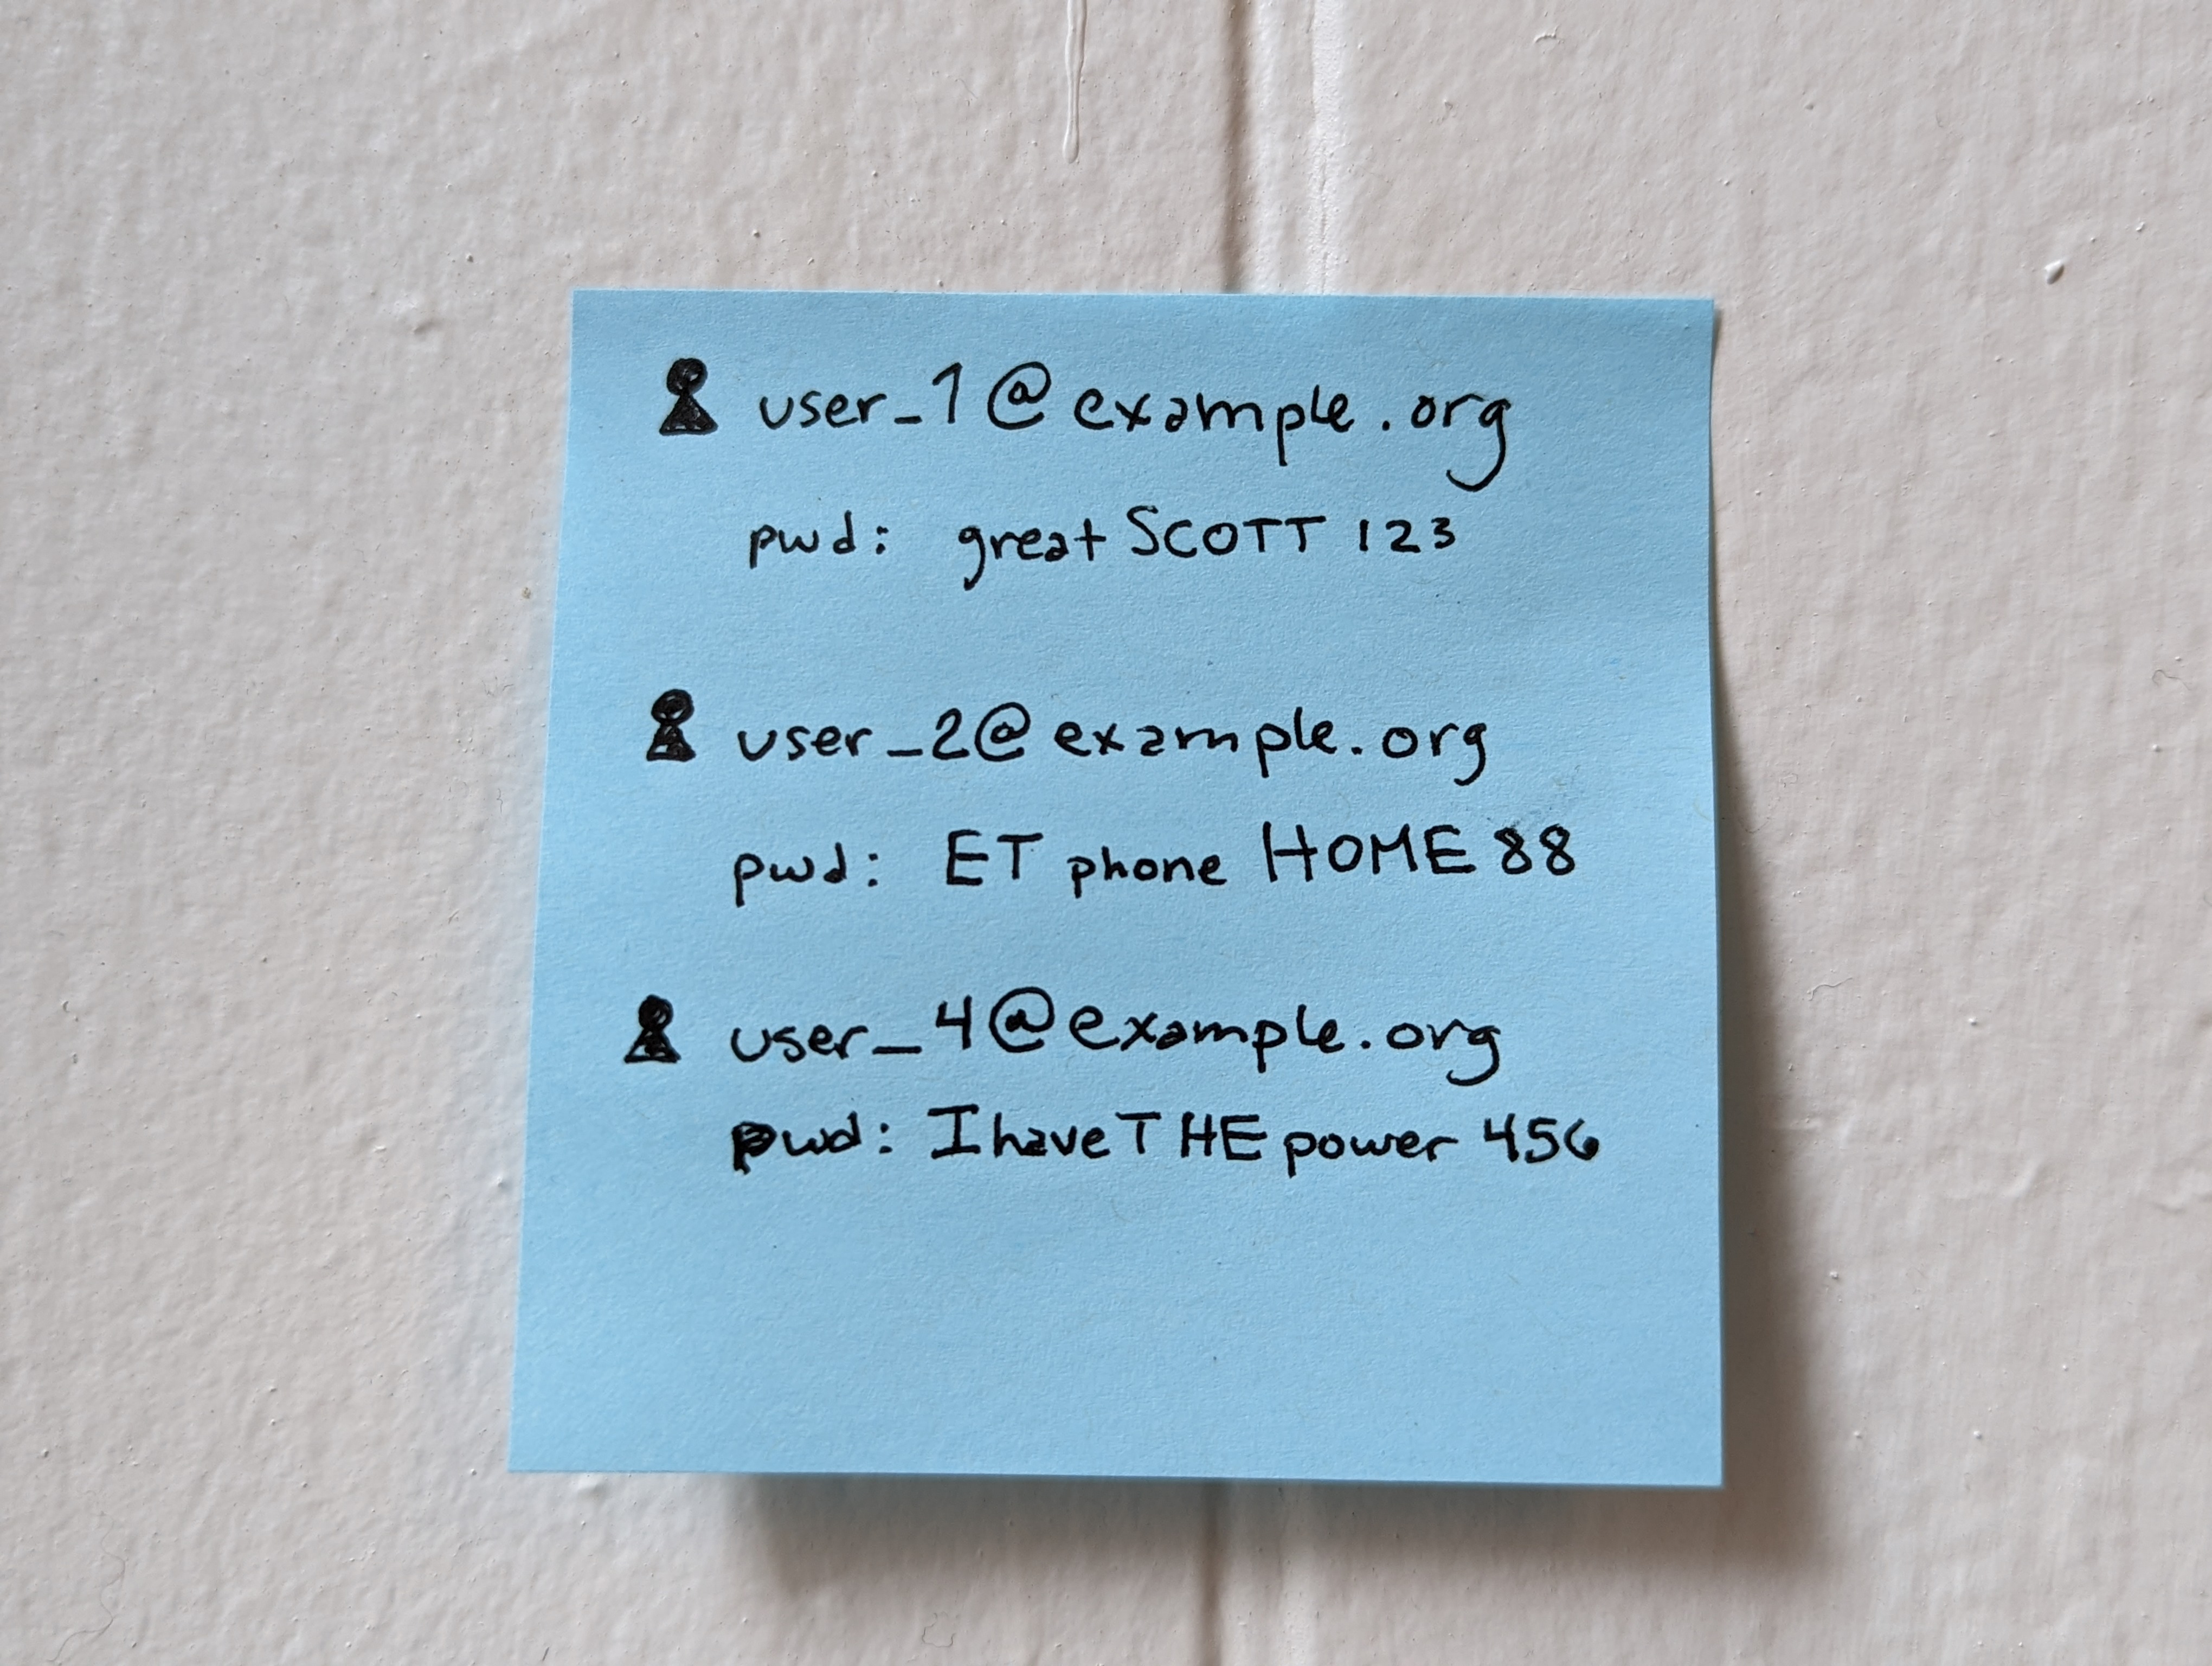 user_1@example.org
pwd: great SCOTT 123
user_2@example.org
pwd: ET phone HOME 88
user_4@example.org
pwd: I have THE power 456